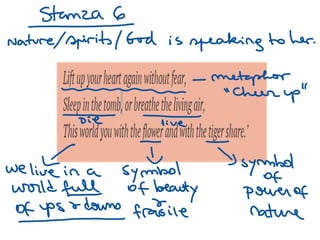 Stanza 6
Nature/Spirits/God is speaking to her.
Lift up your heart again without fear, — metaphor
"Cheer up"
Sleep in the tomb, or breathe the living air,
Die live
This world you with the flower and with the tiger share.'
we live in a symbol symbol
world full of beauty of
of ups & downs & power of
fragile nature